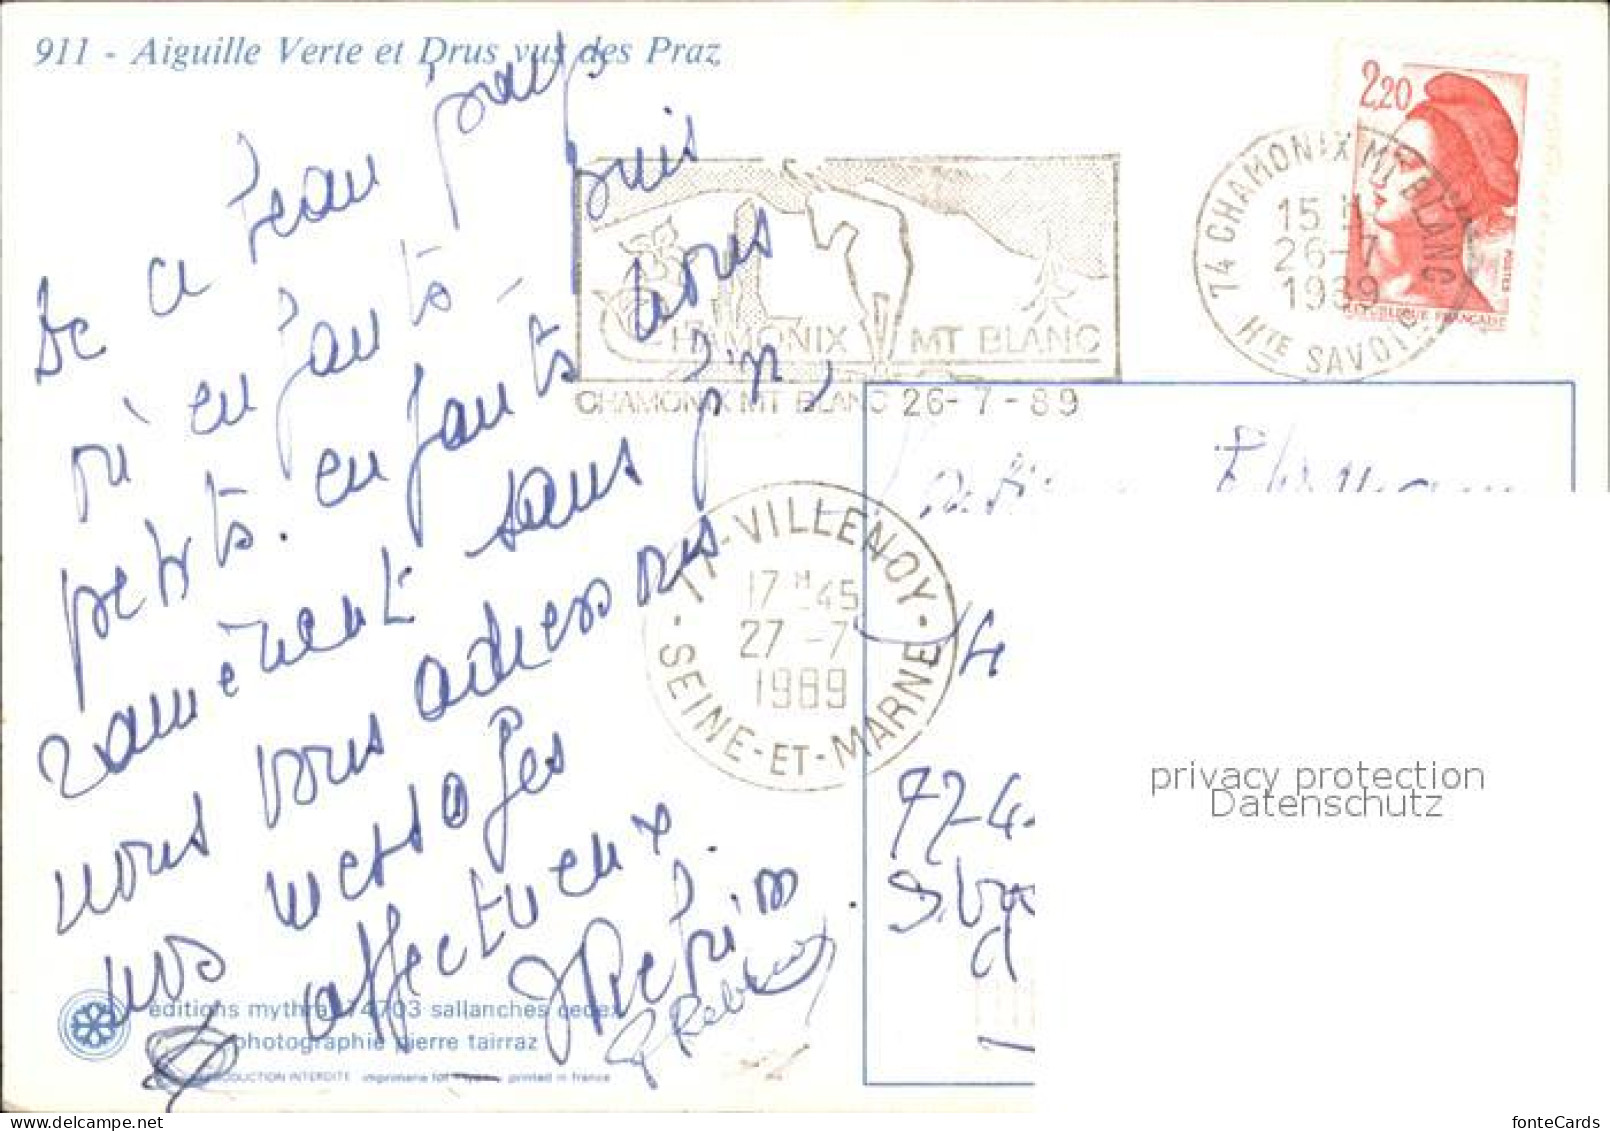 911 - Aiguille Verte et Drus vus des Praz
De ce Beau pays
où enfants puis
petits. enfants nous
ramènent sans fin,
nous vous adressons
nos messages
affectueux.
CHAMONIX MT BLANC
CHAMONIX MT BLANC 26-7-89
74 CHAMONIX MT BLANC
15 H
26-7
1989
HTE SAVOIE
2,20
POSTES
REPUBLIQUE FRANÇAISE
77-VILLENOY
17 H 45
27 -7
1989
SEINE-ET-MARNE
14
privacy protection
Datenschutz
éditions mythra 74703 sallanches cedex
photographie pierre tairraz
REPRODUCTION INTERDITE printed in france
fonteCards